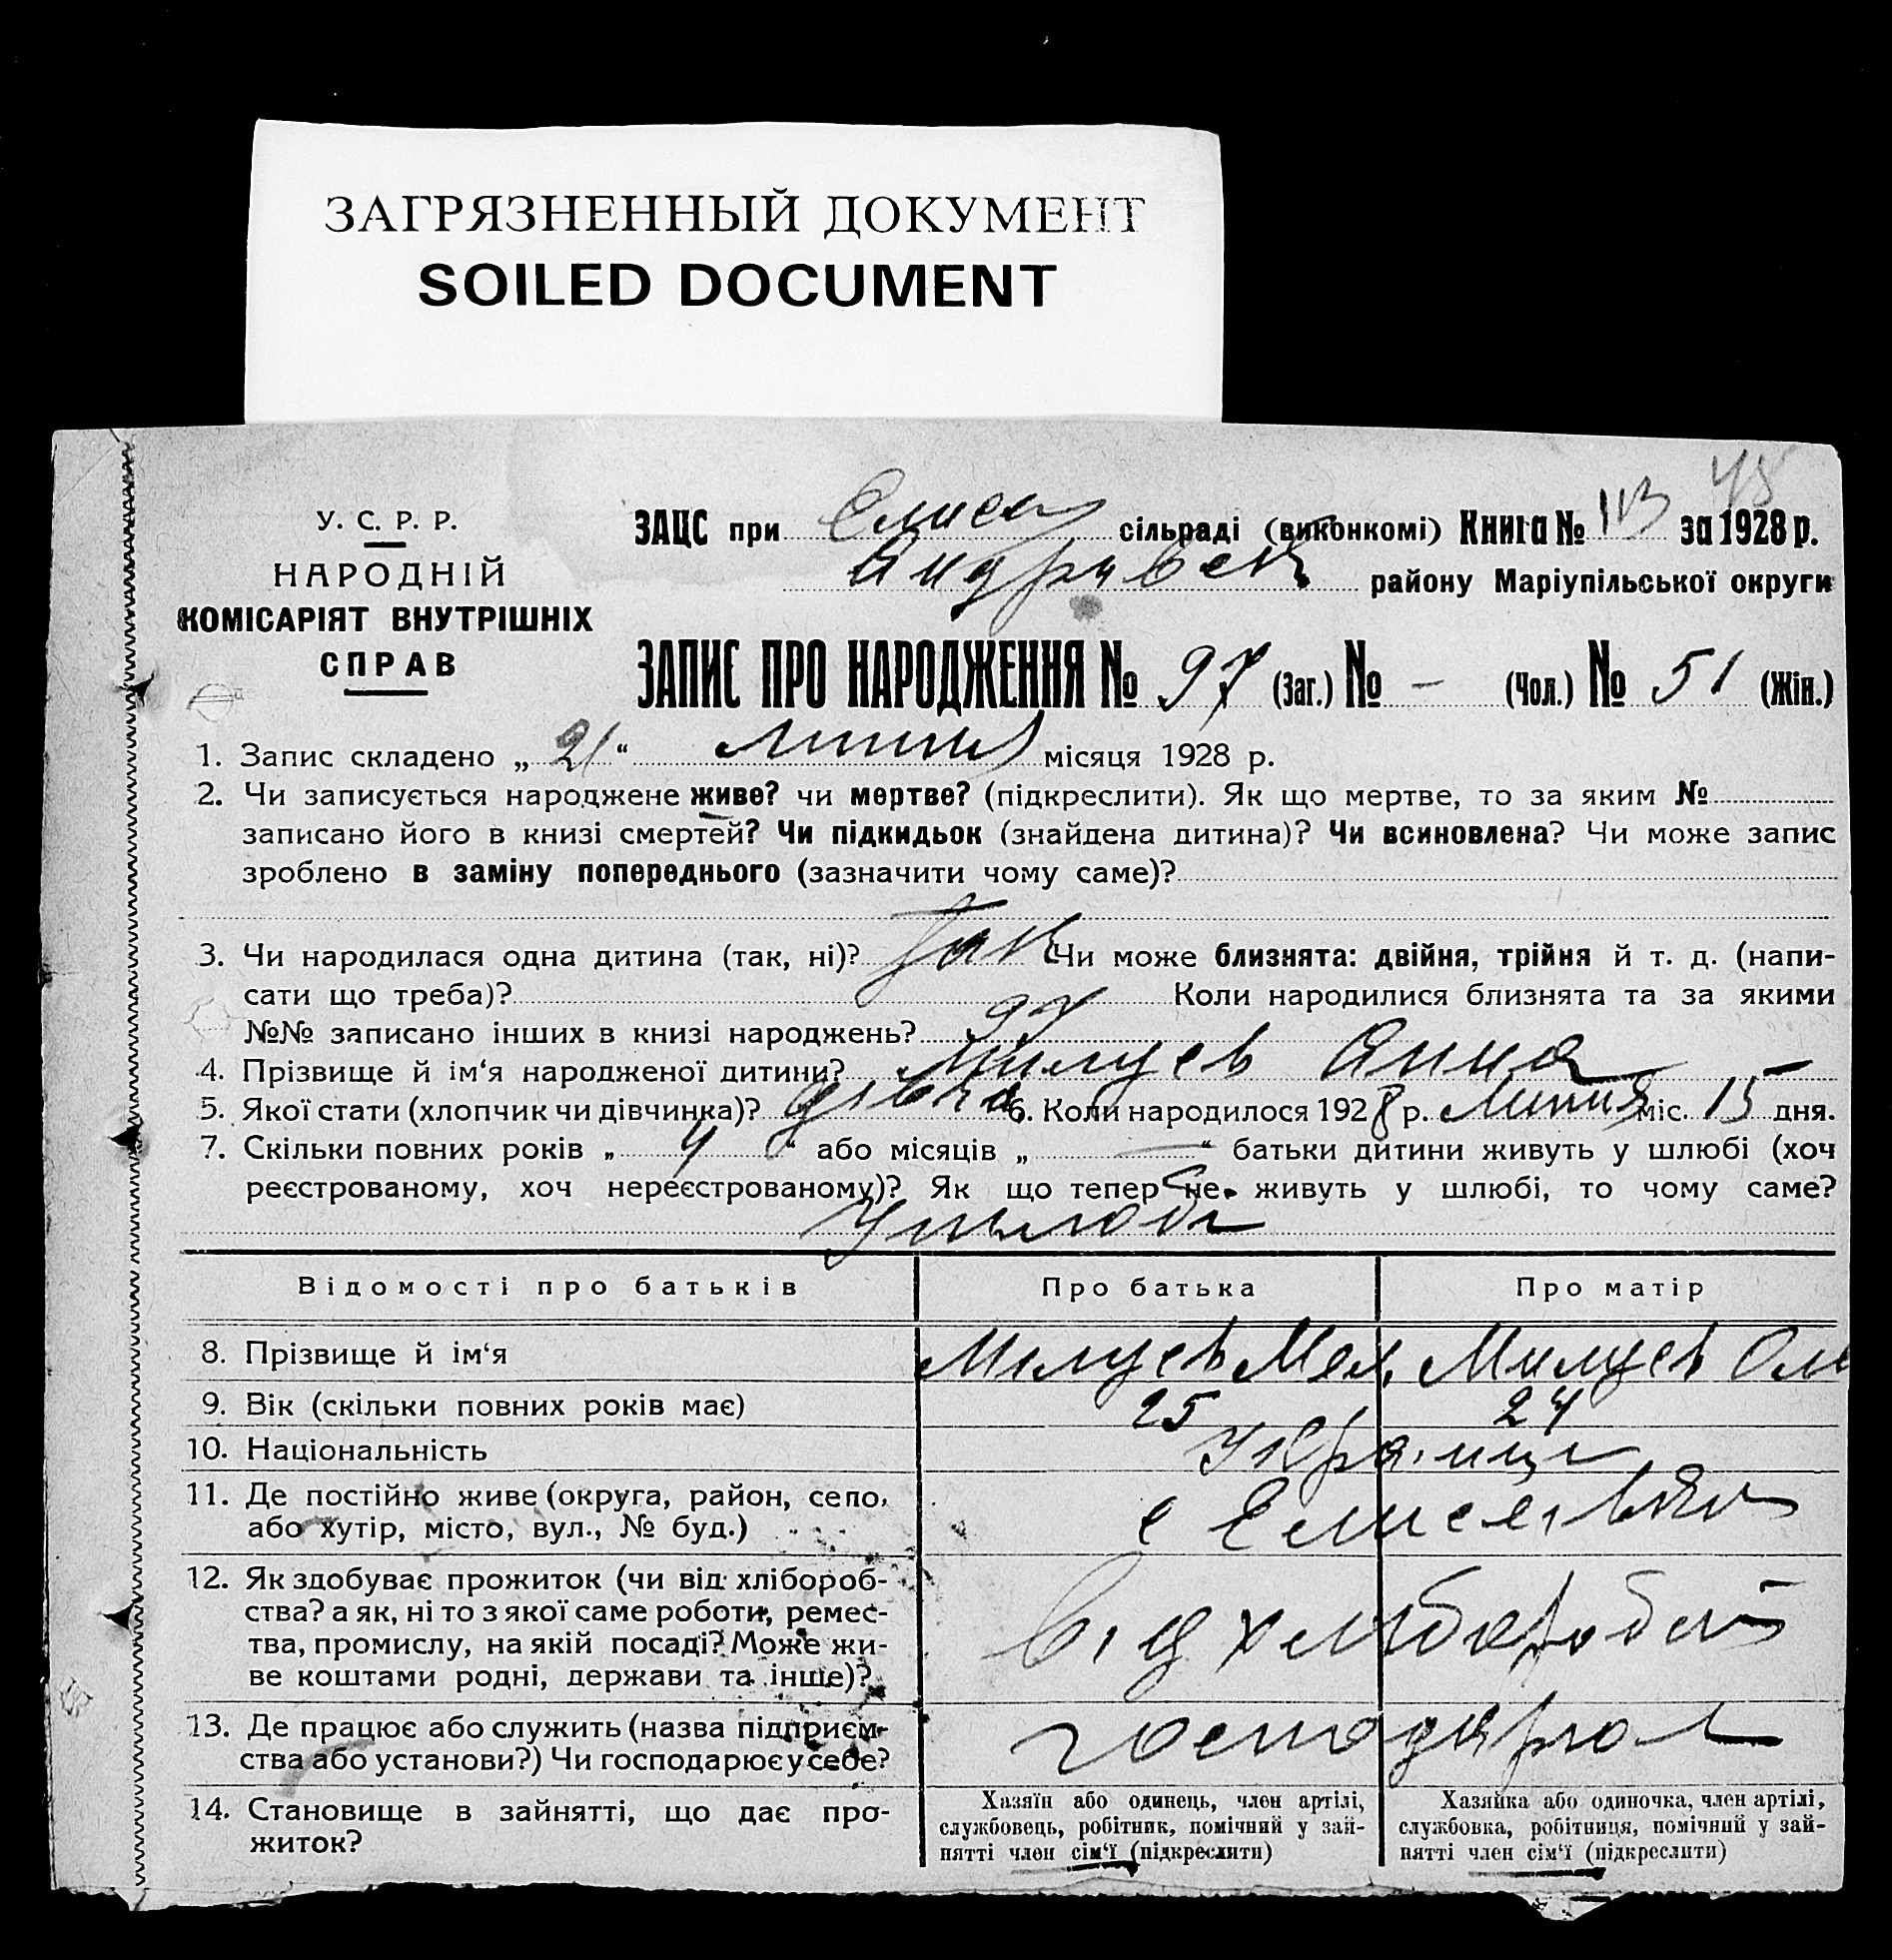 ЗАГРЯЗНЕННЫЙ ДОКУМЕНТ
SOILED DOCUMENT
48
У. С. Р. Р.
НАРОДНІЙ
КОМІСАРІЯТ ВНУТРІШНІХ
СПРАВ
ЗАЦС при Єлисе сільраді (виконкомі) Книга № за 1928 р.
Андрівск району Маріупільської округи
ЗАПИС ПРО НАРОДЖЕННЯ № 97 (Заг.) № - (Чол.) № 51 (Жін.)
1. Запис складено „ 21 “ липня місяця 1928 р.
2. Чи записується народжене живе? чи мертве? (підкреслити). Як що мертве, то за яким №
записано його в книзі смертей? Чи підкидьок (знайдена дитина)? Чи всиновлена? Чи може запис
зроблено в заміну попереднього (зазначити чому саме)?
3. Чи народилася одна дитина (так, ні)? Так Чи може близнята: двійня, трійня й т. д. (напи-
сати що треба)? Коли народилися близнята та за якими
№№ записано інших в книзі народжень? 97
4. Прізвище й ім‘я народженої дитини? Милуєв Анна
5. Якої стати (хлопчик чи дівчинка)? дівка 6. Коли народилося 1928 р. Липня міс. 15 дня.
7. Скільки повних років „ 4 “ або місяців „ — “ батьки дитини живуть у шлюбі (хоч
реєстрованому, хоч нереєстрованому)? Як що тепер не живуть у шлюбі, то чому саме?
У шлюбі
Відомості про батьків Про батька Про матір
8. Прізвище й ім‘я Милуєв Мих. Милуєв Оль
9. Вік (скільки повних років має) 25 24
10. Національність Українці
11. Де постійно живе (округа, район, село,
або хутір, місто, вул., № буд.) с Єлисеівка
12. Як здобуває прожиток (чи від хлібороб-
ства? а як, ні то з якої саме роботи, ремес-
тва, промислу, на якій посаді? Може жи-
ве коштами родні, держави та інше)? від
13. Де працює або служить (назва підприєм-
ства або установи?) Чи господарює у себе?
14. Становище в зайнятті, що дає про-
житок?
Хазяїн або одинець, член артілі,
службовець, робітник, помічний у зай-
нятті член сім‘ї (підкреслити)
Хазяйка або одиночка, член артілі,
службовка, робітниця, помічний у зай-
нятті член сім‘ї (підкреслити)